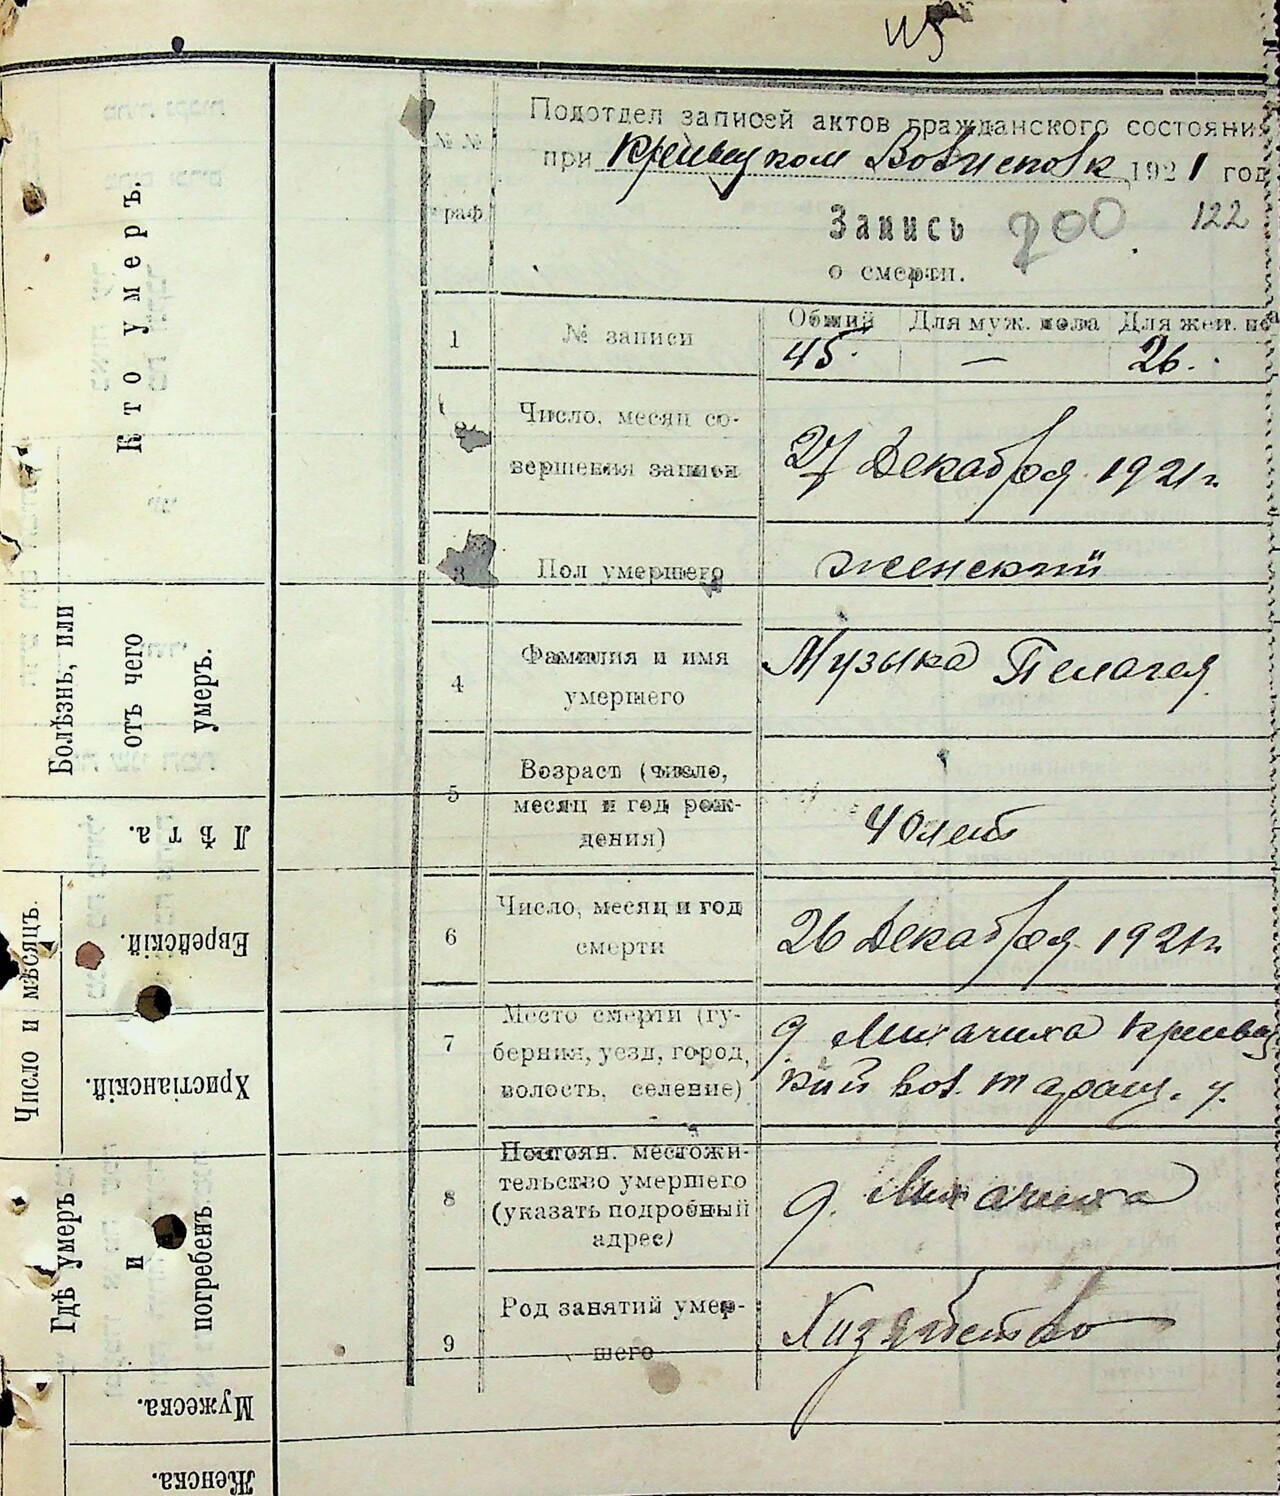 Подотдел записей актов гражданского состояния
при Кривецком Волисполк 1921 год
№№ граф
Запись 200 122
о смерти.
1 № записи Общий Для муж. пола Для жен. по
45. — 26.
Число, месяц со-
вершения записи
27 Декабря 1921 г
3 Пол умершего женский
4 Фамилия и имя
умершего
Музыка Пелагея
5 Возраст (число,
месяц и год рож-
дения)
40 лет
6 Число, месяц и год
смерти
26 Декабря 1921 г
7 Место смерти (гу-
берния, уезд, город,
волость, селение)
д Лихачиха Кривец
кий вол. Таращ. у.
8 Постоян. местожи-
тельство умершего
(указать подробный
адрес)
д. Лихачиха
9 Род занятий умер-
шего
Хазяйство
Кто умеръ.
Болѣзнь, или
отъ чего
умеръ.
Лѣта.
Число и мѣсяцъ.
Еврейскій.
Христіанскій.
Гдѣ умеръ
и
погребенъ
Мужеска.
Женска.